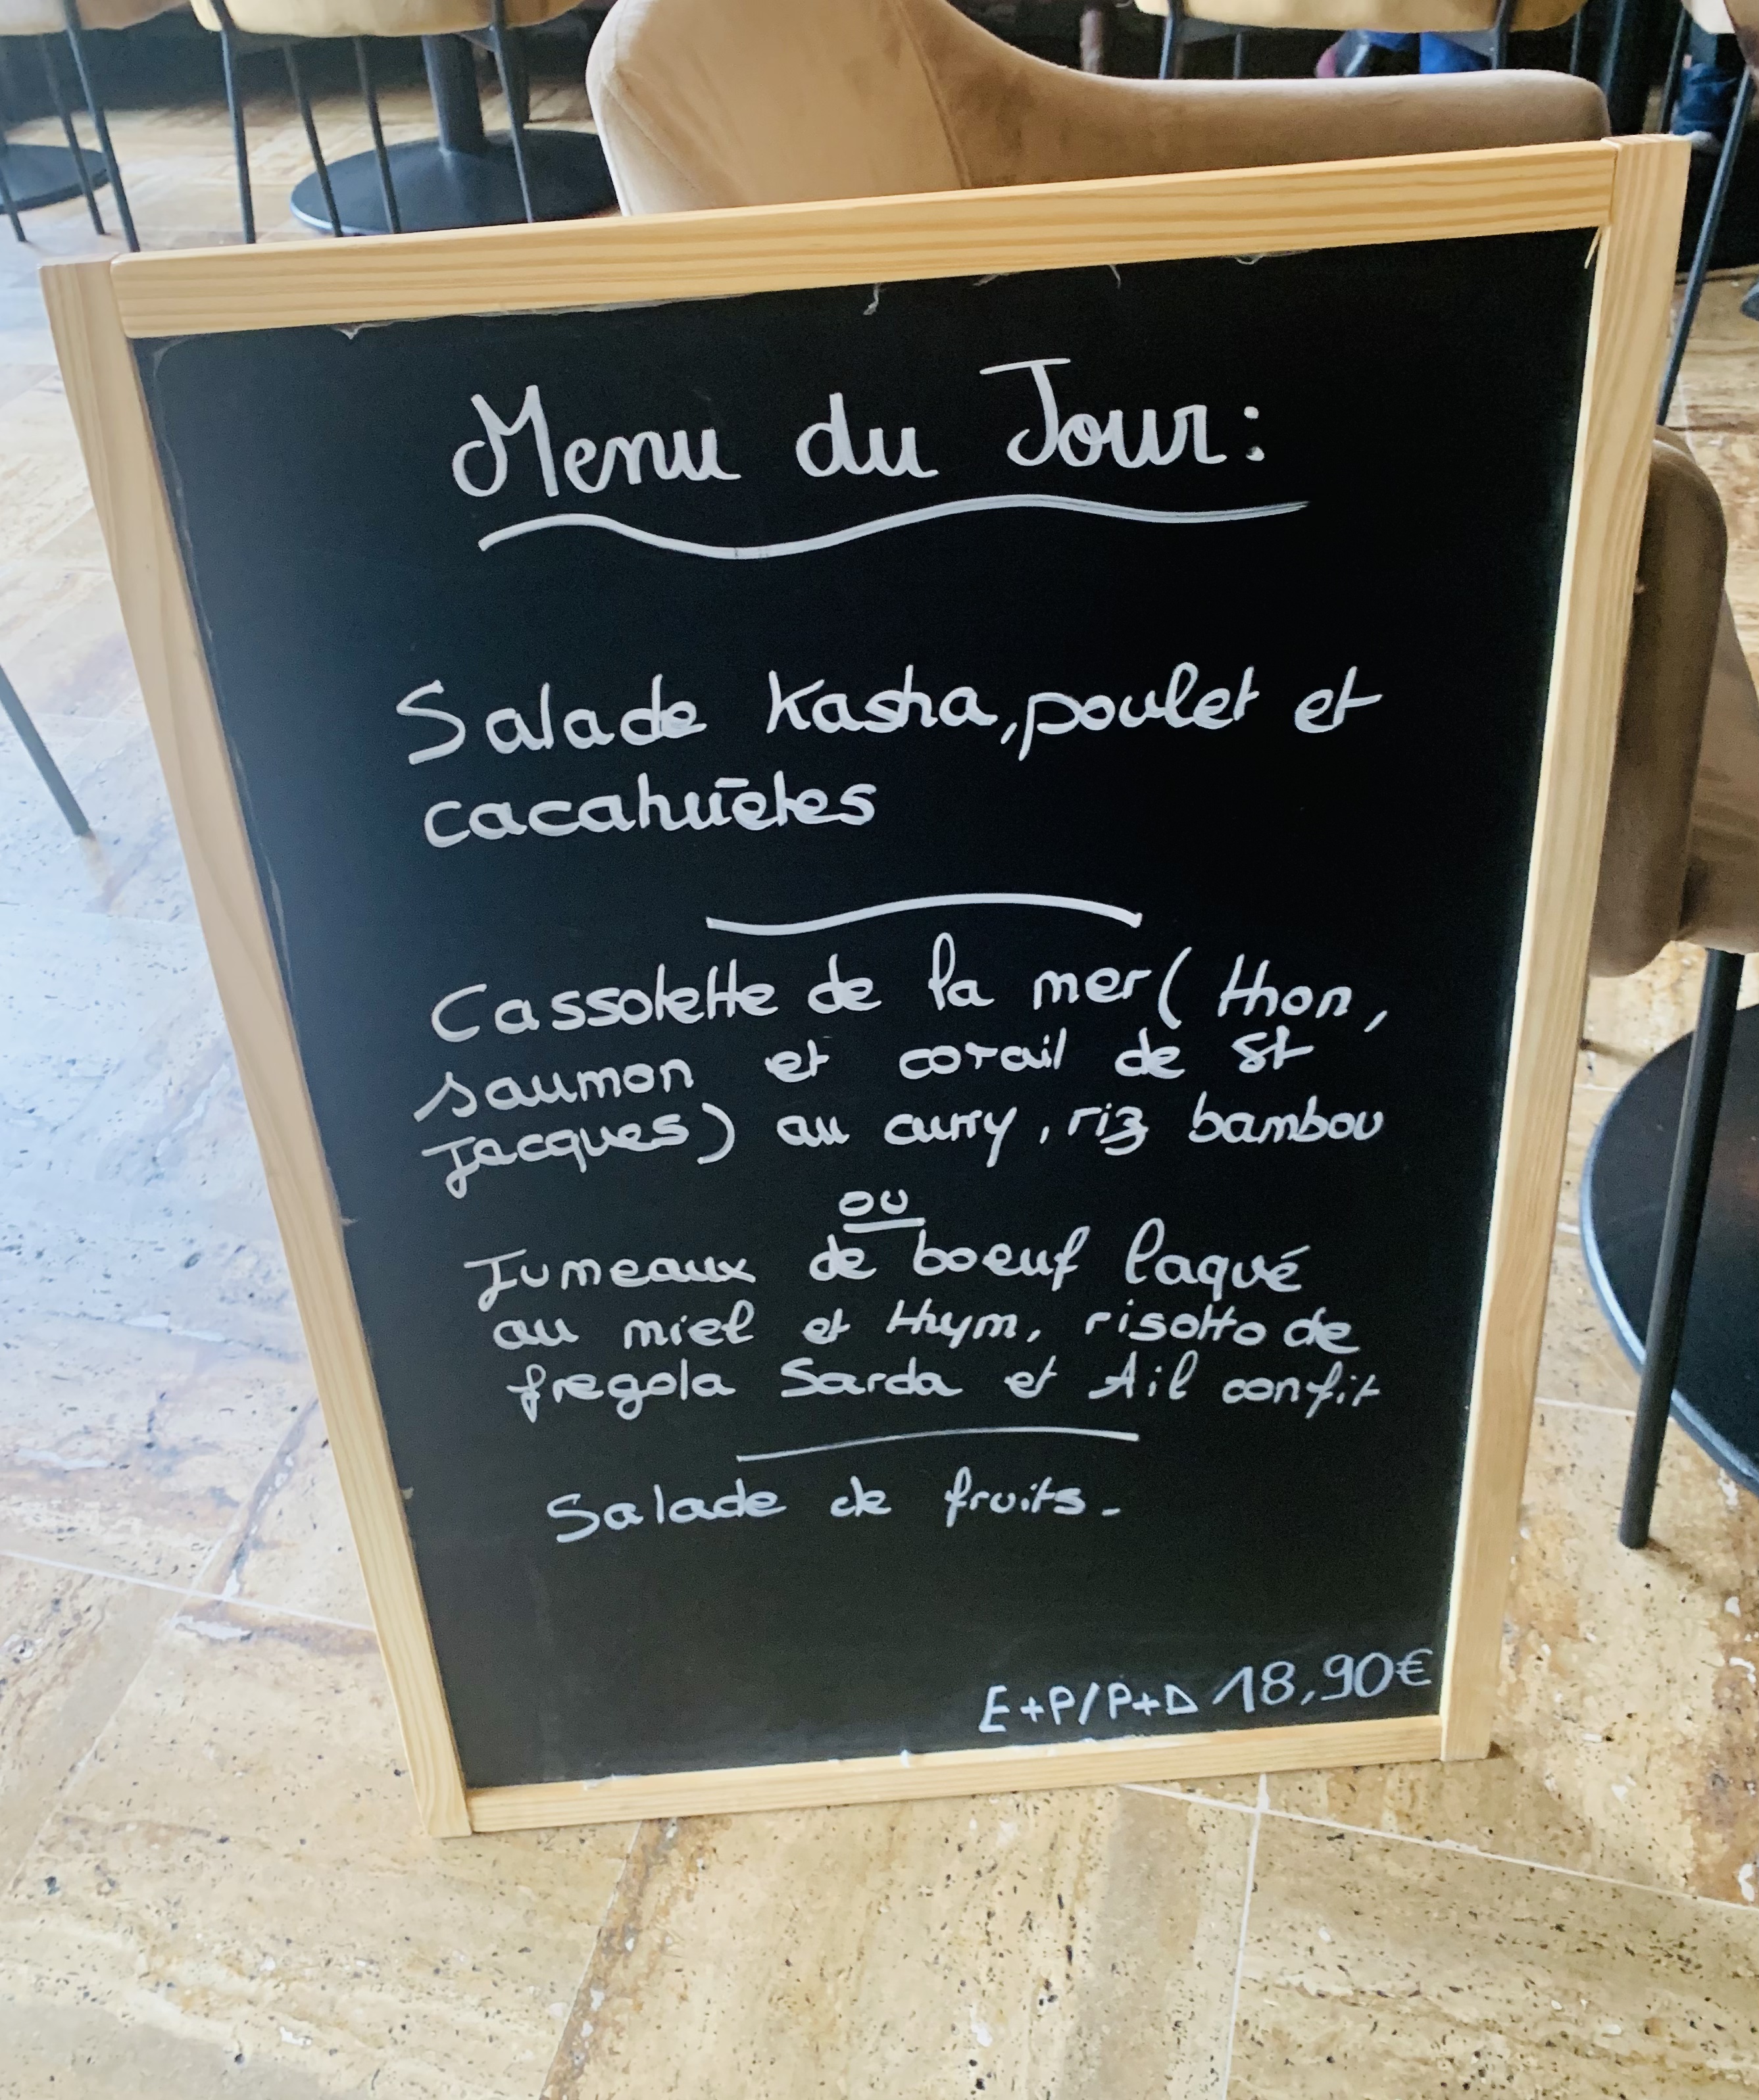 Menu du Jour:
Salade Kasha, poulet et
cacahuètes
Cassolette de la mer (thon,
saumon et corail de St
Jacques) au curry, riz bambou
ou
Jumeaux de boeuf laqué
au miel et thym, risotto de
fregola Sarda et Ail confit
Salade de fruits.
E+P/P+D 18,90€